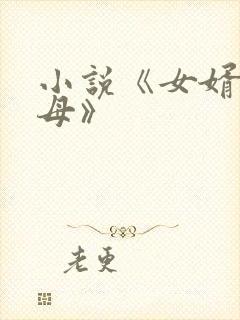 小説《女婿
母》
老更